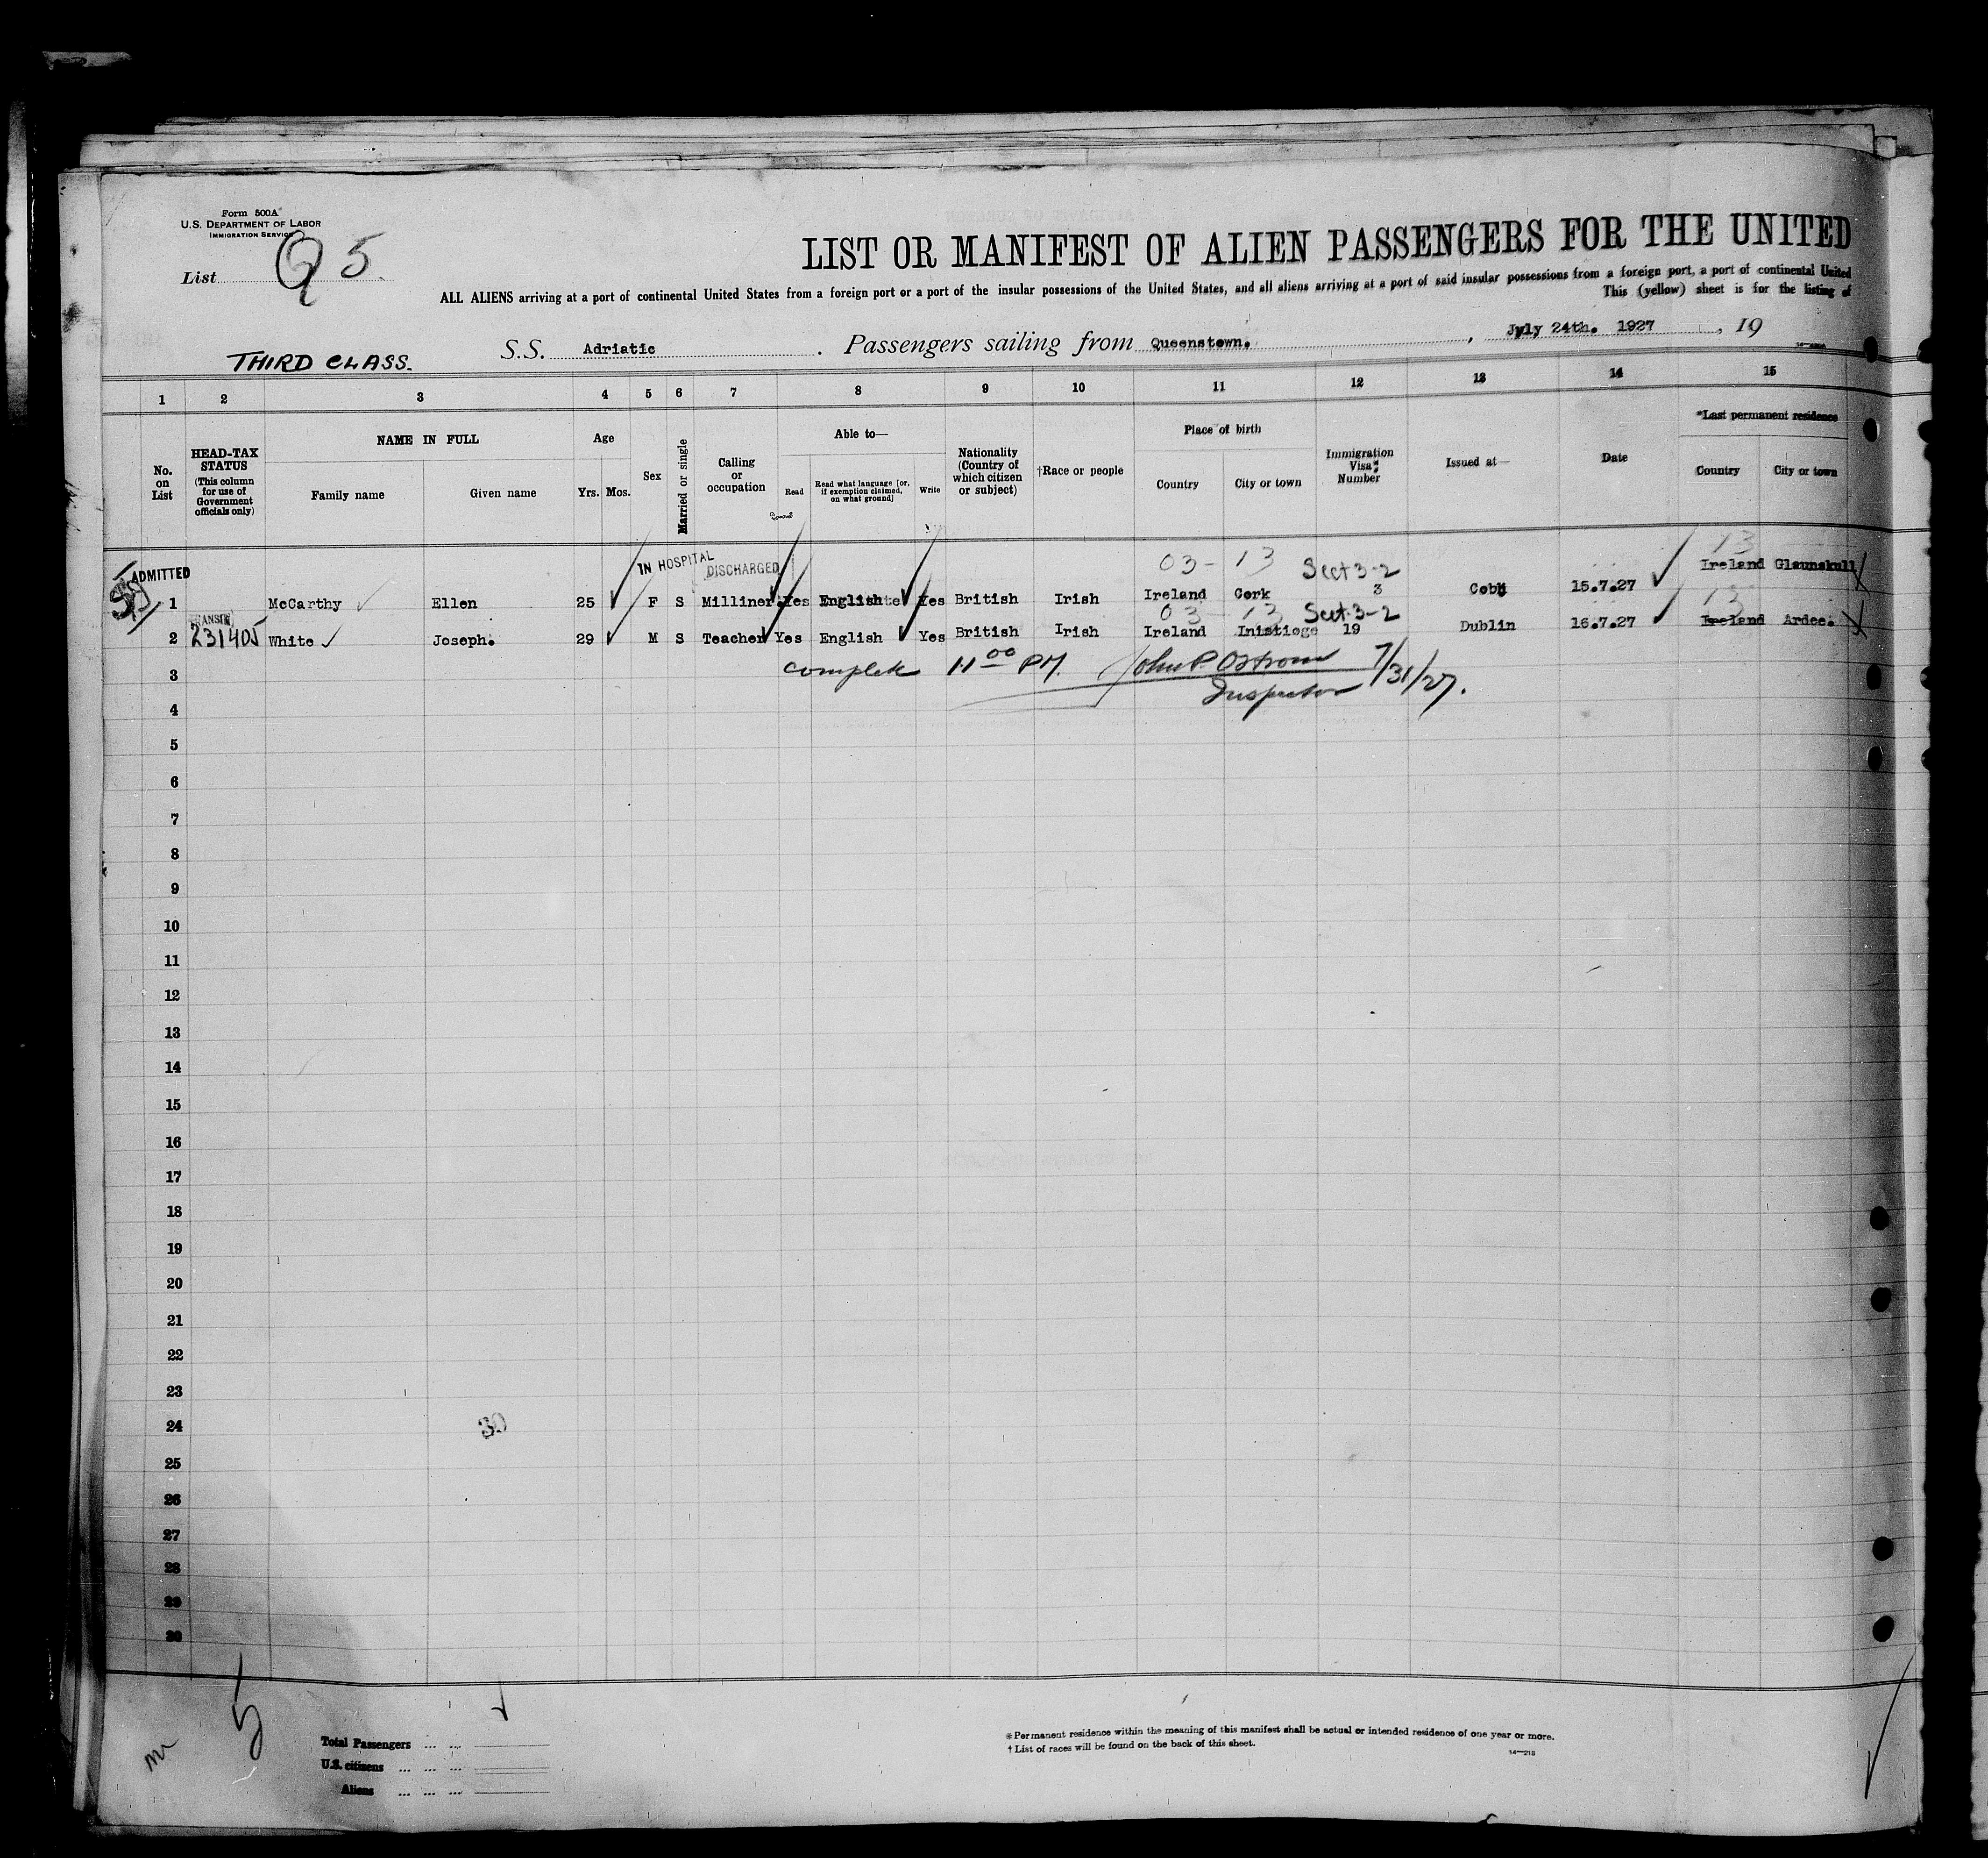 Form 500A
U.S. DEPARTMENT OF LABOR
IMMIGRATION SERVICE
List Q 5
LIST OR MANIFEST OF ALIEN PASSENGERS FOR THE UNITED
ALL ALIENS arriving at a port of continental United States from a foreign port or a port of the insular possessions of the United States, and all aliens arriving at a port of said insular possessions from a foreign port, a port of continental United
This (yellow) sheet is for the listing of
THIRD CLASS. S.S. Adriatic . Passengers sailing from Queenstown. , July 24th. 1927 , 19
1 2 3 4 5 6 7 8 9 10 11 12 13 14 15
No. on List
HEAD-TAX STATUS (This column for use of Government officials only)
NAME IN FULL
Family name Given name
Age
Yrs. Mos.
Sex
Married or single
Calling or occupation
Able to—
Read Read what language [or, if exemption claimed, on what ground] Write
Nationality (Country of which citizen or subject)
†Race or people
Place of birth
Country City or town
Immigration Visa Number
Issued at—
Date
*Last permanent residence
Country City or town
ADMITTED IN HOSPITAL DISCHARGED 03- 13 Sect 3-2 13
1 McCarthy Ellen 25 F S Milliner Yes English Yes British Irish Ireland Cork 3 Cobh 15.7.27 Ireland Glaunskull
03 13 Sect. 3-2 13
2 231405 White Joseph. 29 M S Teacher Yes English Yes British Irish Ireland Inistioge 19 Dublin 16.7.27 Ireland Ardee.
3 complete 11 00 PM. John P. Ostrom 7/31/27.
Inspector
4
5
6
7
8
9
10
11
12
13
14
15
16
17
18
19
20
21
22
23
24 30
25
26
27
28
29
30
5
Total Passengers ... ...
U.S. citizens ... ... ...
Aliens ... ... ...
*Permanent residence within the meaning of this manifest shall be actual or intended residence of one year or more.
†List of races will be found on the back of this sheet.
14—213